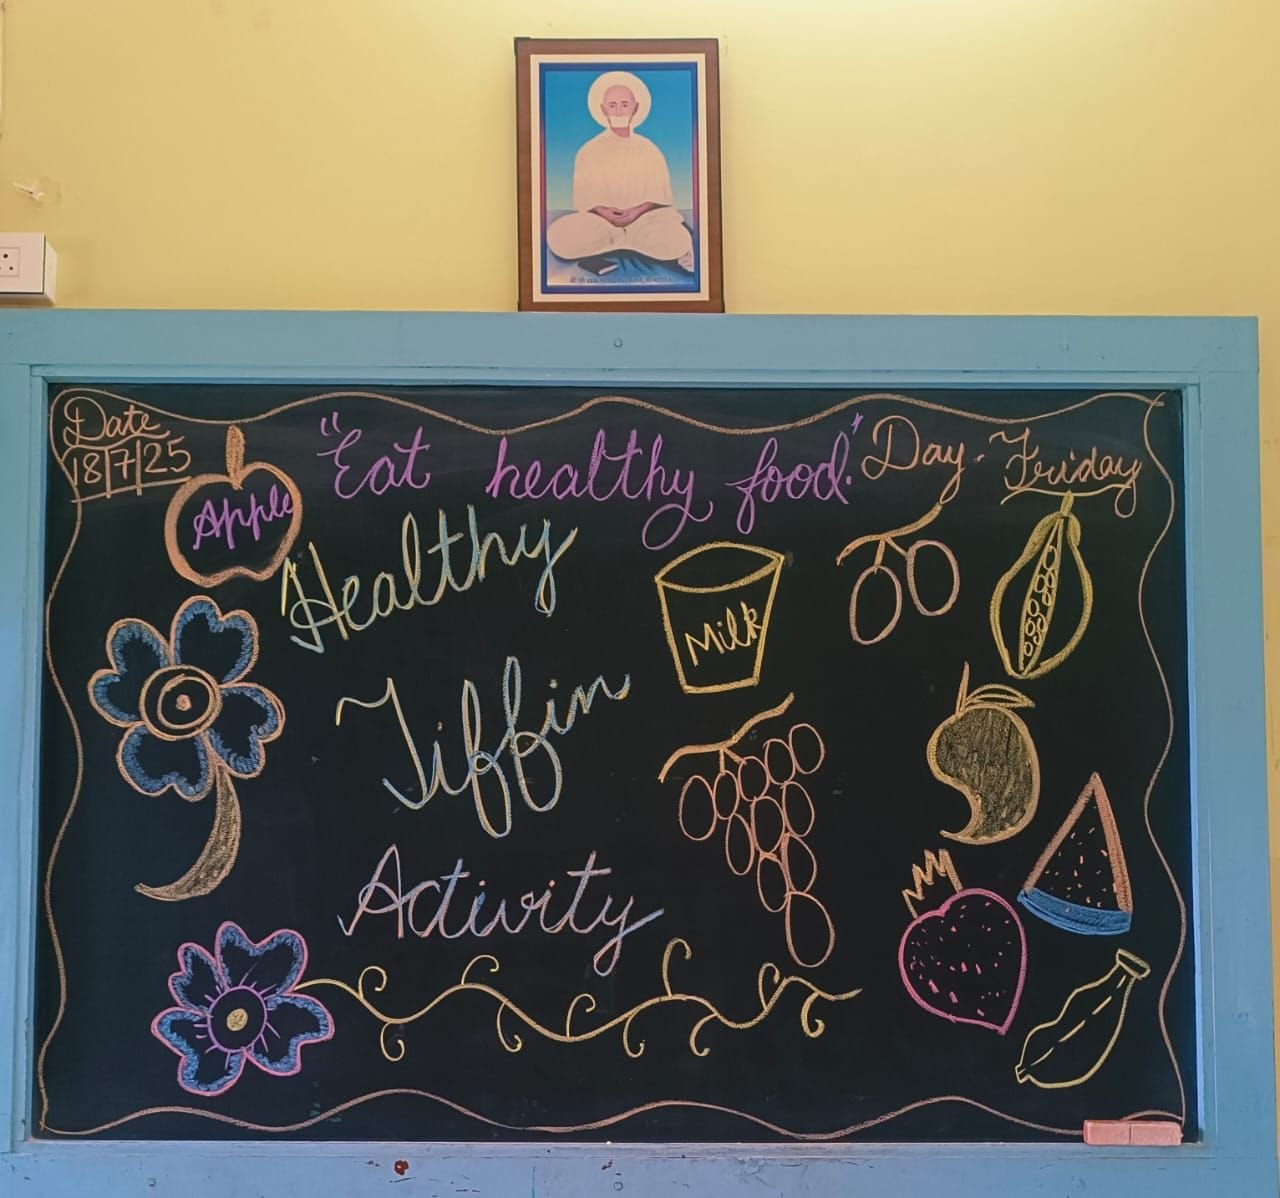 Date
18/7/25
"Eat healthy food."
Day - Friday
Apple
Healthy
Milk
Tiffin
Activity